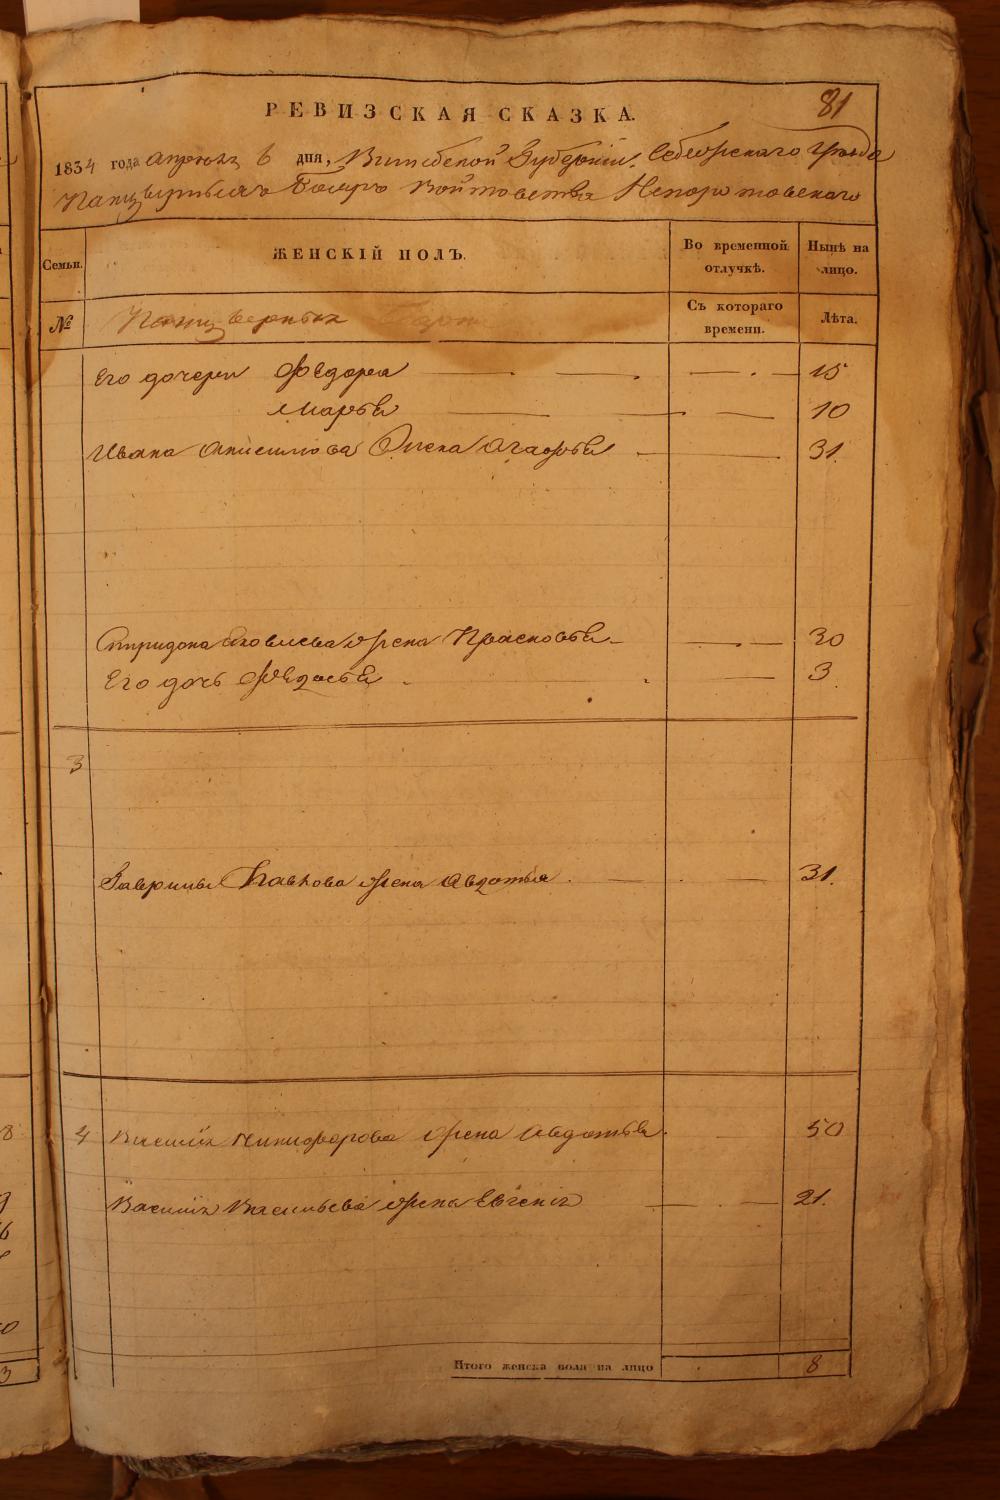 81
РЕВИЗСКАЯ СКАЗКА.
1834 года апреля 6 дня, Витебской Губернии, Себежскаго уезда
Панцырныхъ Бояръ Войтовства Непоротовскаго
Семьи. ЖЕНСКІЙ ПОЛЪ. Во временной отлучкѣ. Нынѣ на лицо.
№ Панцверныхъ Съ котораго времени. Лѣта.
Его дочери Федора 15
Марья 10
Ивана Анисимова Жена Агафья 31.
Спиридона Яковлева жена Прасковья 30
Его дочь Федосья 3
3
Гаврилы Павлова жена Авдотья 31.
4 Василія Никифорова жена Авдотья 50
Василія Васильева жена Евгенія 21.
Итого женска пола на лицо 8